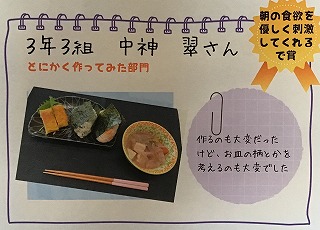 朝の食欲を
優しく刺激
してくれる
で賞
3年3組 中神 翠さん
とにかく作ってみた部門
作るのも大変だった
けど、お皿の柄とかを
考えるのも大変でした